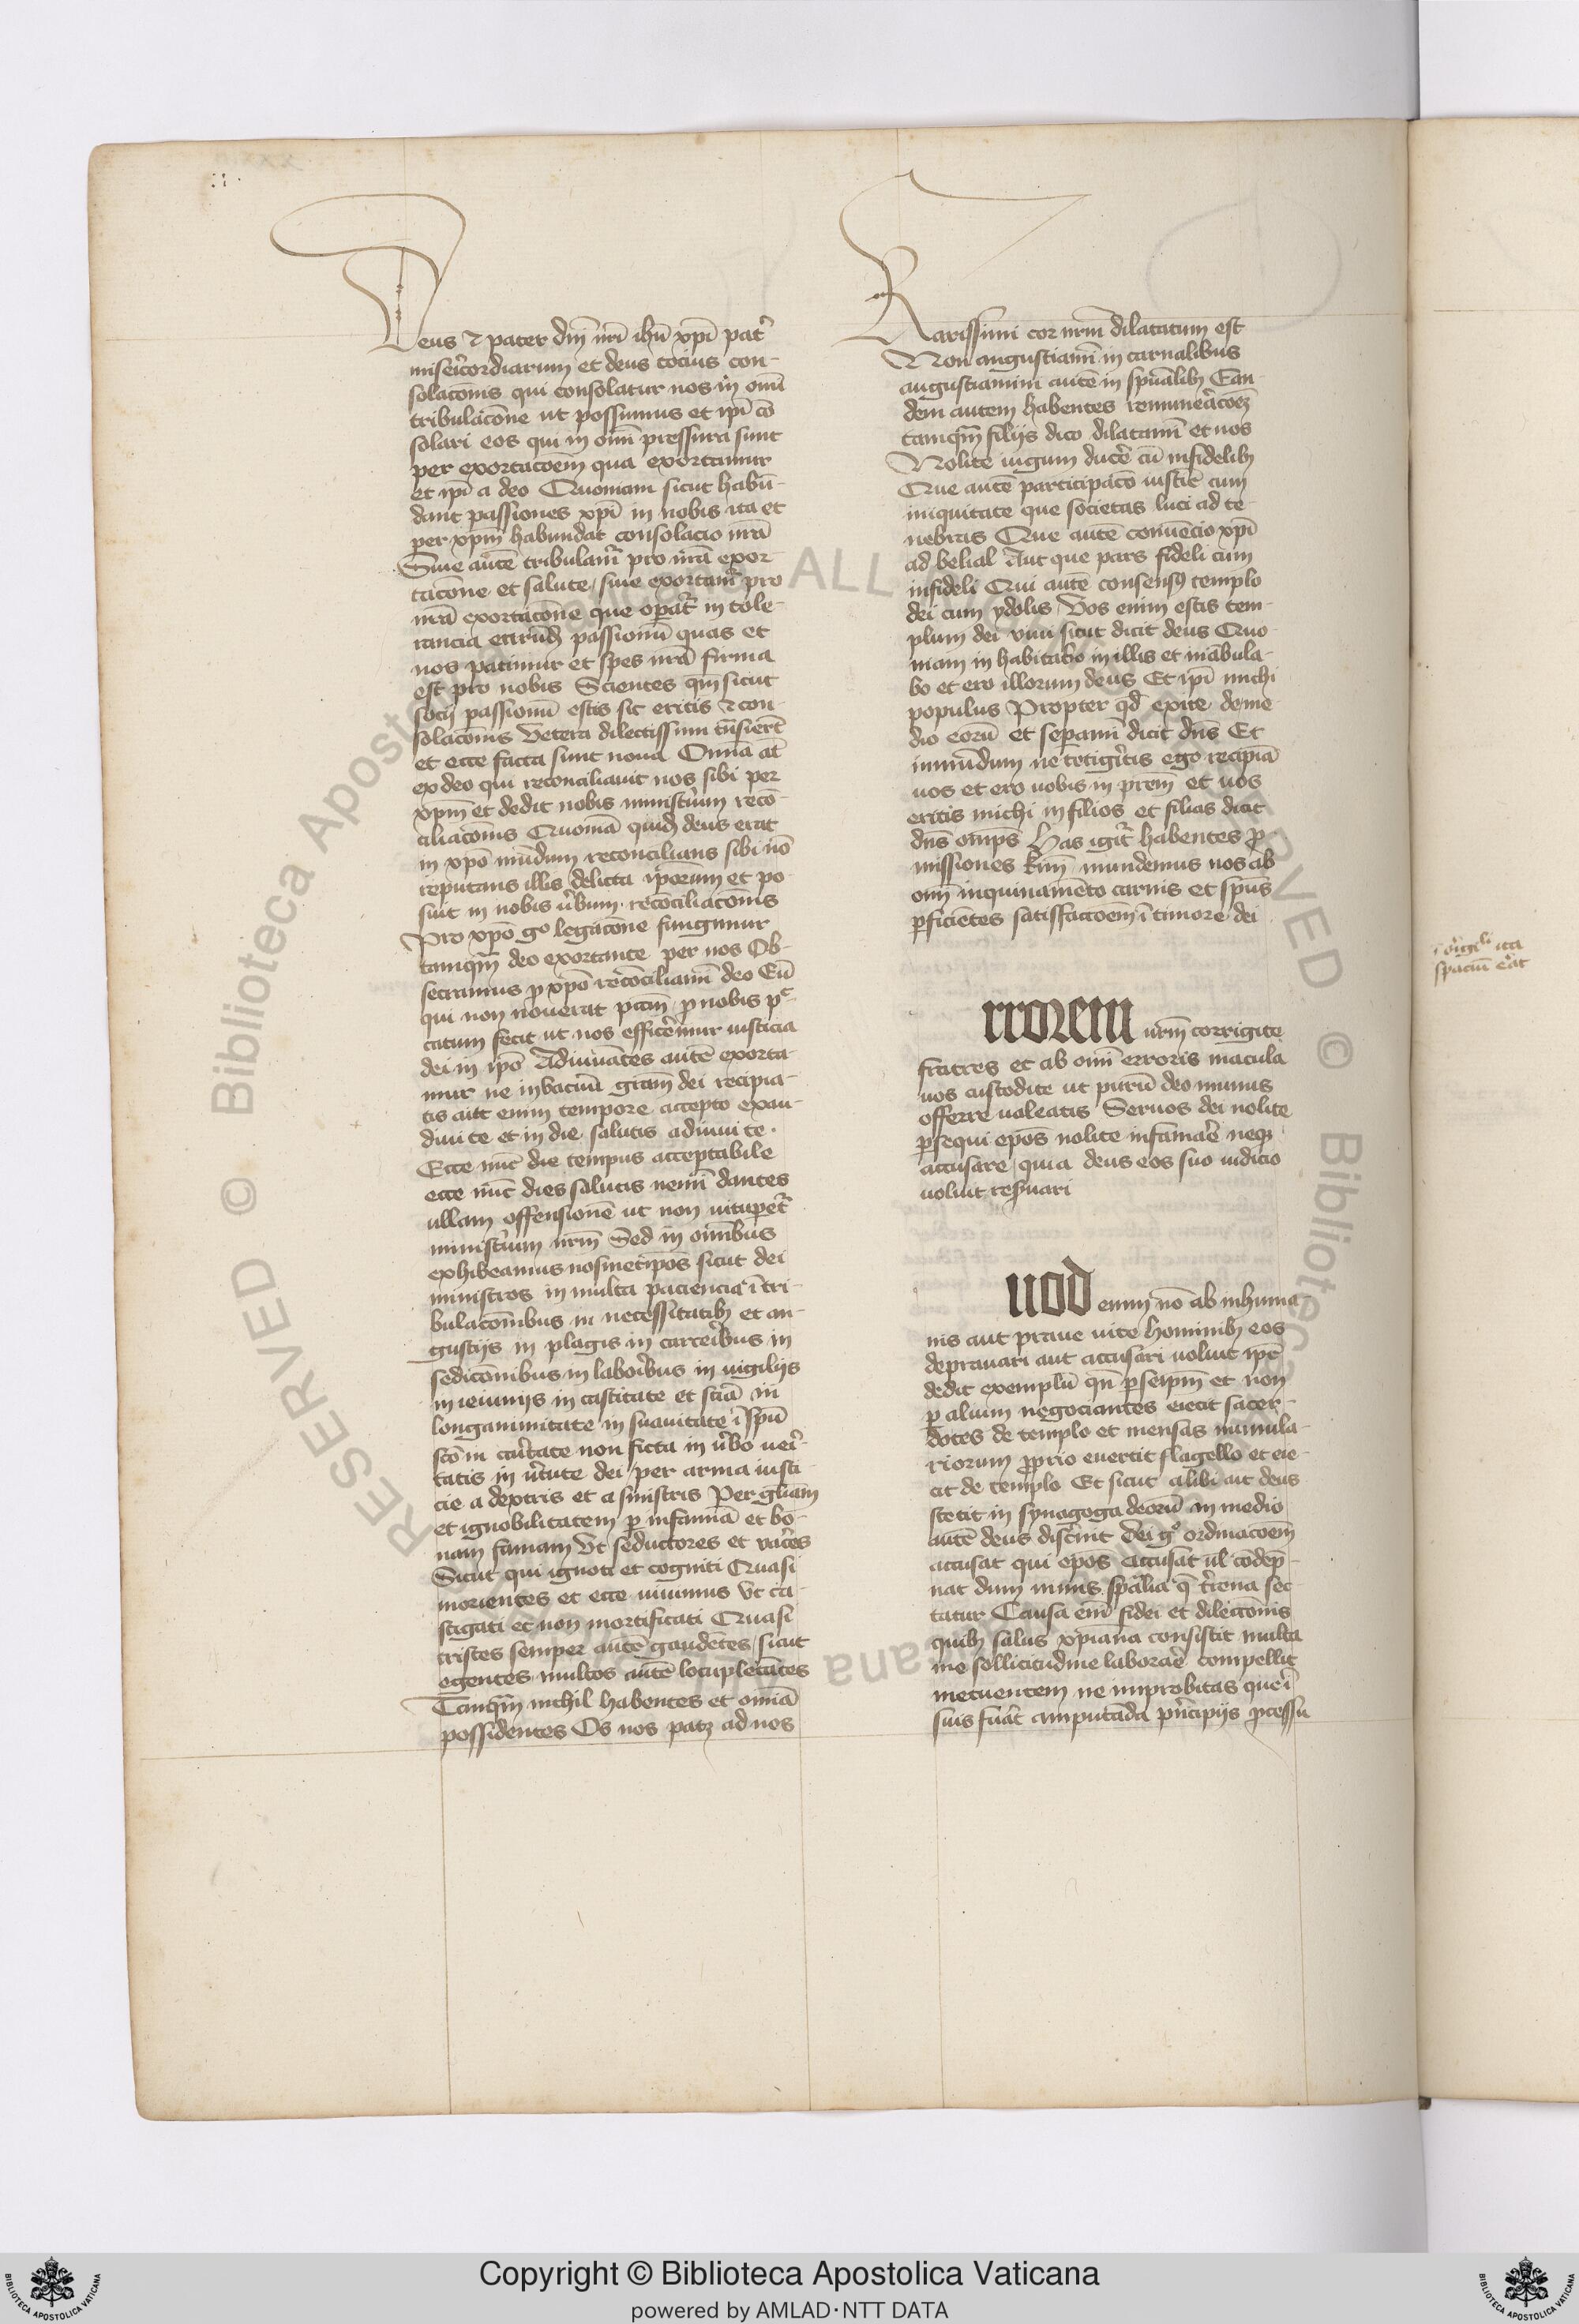 Deus ⁊ pater dn̄i nr̄i ih̄u xp̄i pat̾
misericordiarum et deus tocius con-
solacōnis qui consolatur nos in omī
tribulacōne ut possimus et ip̄i cō
solari eos qui in omī pressura sunt
per exortacōem qua exortamur
et ip̄i a deo Quoniam sicut habū-
dant passiones xp̄i in nobis ita et
per xpm̄ habundat consolacio nr̄a
Siue autē tribulam̾ pro nr̄a exor
tacōne et salute, siue exortam̾ pro
nr̄a exortacōne que operat̾ in tole-
rancia earūd̄ passionū quas et
nos patimur et spes nr̄a firma
est pro nobis Scientes qm̄ sicut
socij passionū estis sic eritis ⁊ con-
solacōnis Vetera dilectissimi tn̄sierūt
et ecce facta sunt noua Omīa āt
ex deo qui reconciliauit nos sibi per
xpm̄ et dedit nobis ministerium recō-
ciliacōnis Quomā quid̄ deus erat
in xpō mūdum reconcilians sibi nō
reputans illis delicta ip̄orum et po-
suit in nobis ūbum reconciliacōnis
Pro xpō gͦ legacōne fungimur
tamqm̄ deo exortante per nos Ob-
secramus ꝓ xpō reconciliamī deo Eū
qui non nouerat pccm̄ ꝓ nobis pc̄-
catum fecit ut nos efficeremur iusticia
dei in ip̄o Adiuuātes autē exorta-
mur ne in vacuū grām dei recipia-
tis ait enim tempore accepto exau-
diui te et in die salutis adiuui te.
Ecce nūc die tempus acceptabile
ecce nūc dies salutis nemī dantes
ullam offensionē ut non uituperet̾
ministerium nrm̄ Sed in omībus
exhibeamus nosmetip̄os sicut dei
ministros in multa paciencia ī tri-
bulacōnibus in necessitatibꝫ et an-
gustijs in plagis in carceribus in
sedicōnibus in laboribus in uigilijs
in ieiunijs in castitate et sciā in
longanimitate in suauitate ī spū
scō in caritate non ficta in ūbo ueri-
tatis in ūtute dei per arma iusti-
cie a dextris et a sinistris Per glīam
et ignobilitatem ꝑ infamiā et bo-
nam famam Vt seductores et ueraces
Sicut qui ignoti et cogniti Quasi
morientes et ecce uiuimus Vt ca-
stigati et non mortificati Quasi
tristes semper autē gaudētes sicut
egentes multos autē locupletātes
Tanqm̄ nichil habentes et omīa
possidentes Os nos patꝫ ad uos
Karissimi cor nrm̄ dilatatum est
Non angustiamī in carnalibus
angustiamini autē in spūalibꝫ Ean-
dem autem habentes remuneracōeꝫ
tamqm̄ filijs dico dilatamī et uos
Nolite iugum ducere cū infidelibꝫ
Que autē participacō iusticie cum
iniquitate que societas luci ad te-
nebras Que autē conuēcio xpī
ad belial Aut que pars fideli cum
infideli Qui autē consensꝰ templo
dei cum ydolis Vos enim estis tem-
plum dei viui sicut dicit deus Quo
niam in habitabo in illis et inābula-
bo et ero illorum deus Et ip̄i michi
populus Propter qd̄ exite de me
dio eorū et separamī dicit dn̄s Et
inmūdum ne tetigeritis ego recipiā
uos et ero uobis in prēm et uos
eritis michi in filios et filias dicit
dn̄s omp̄s Has igit̾ habentes ꝓ
missiones krm̄i mundemus nos ab
omī inquinamēto carnis et spūs
ꝑficiētes satisfactōem ī timore dei
rrorem urm̄ corrigite
fratres et ab omī erroris macula
uos custodite ut purū deo munus
offerre ualeatis Seruos dei nolite
ꝑsequi ep̄os nolite infamare neqꝫ
accusare quia deus eos suo iudicio
uoluit reseruari
uod enim nō ab inhuma-
nis aut praue uite hominibꝫ eos
deprauari aut accusari uoluit ip̄e
dedit exemplū qn̄ ꝑ seip̄m et non
ꝑ alium negociantes eiecit sacer-
dotes de templo et mensas numula-
riorum ꝓprio euertit flagello et eie-
cit de templo Et sicut alibi ait deus
stetit in synagoga deorū in medio
autē deus discernit Dei gͦ ordinacōem
accusat qui ep̄os accusat ul̄ cōdep̄-
nat dum minus spālia qͣ terrena sec
tatur Causa eni̅ fidei et dileccōnis
quibꝫ salus xp̄iana consistit multa
me sollicitudine laborare compellit
metuentem ne improbitas que ī
suis fuat amputāda principijs ꝓcessu
spaciū erat
Copyright © Biblioteca Apostolica Vaticana
powered by AMLAD·NTT DATA